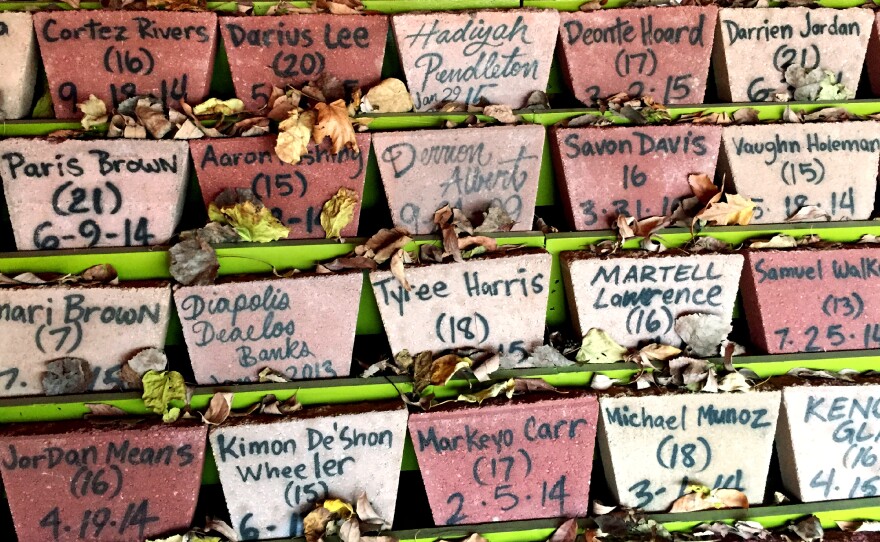 Cortez Rivers
(16)
9.18.14
Darius Lee
(20)
Hadiyah
Pendleton
Jan 29 15
Deonte Hoard
(17)
Darrien Jordan
(21)
Paris Brown
(21)
6-9-14
Aaron
(15)
Derrion
Albert
Savon Davis
16
Vaughn Holeman
(15)
5.18.14
Brown
(7)
7.
Diapolis
Deaelos
Banks
2013
Tyree Harris
(18)
15
MARTELL
Lawrence
(16)
Samuel
(13)
7.25.14
JorDan Means
(16)
4.19.14
Kimon De'Shon
Wheeler
(15)
6-1
Markeyo Carr
(17)
2.5.14
Michael Munoz
(18)
(16
4.15